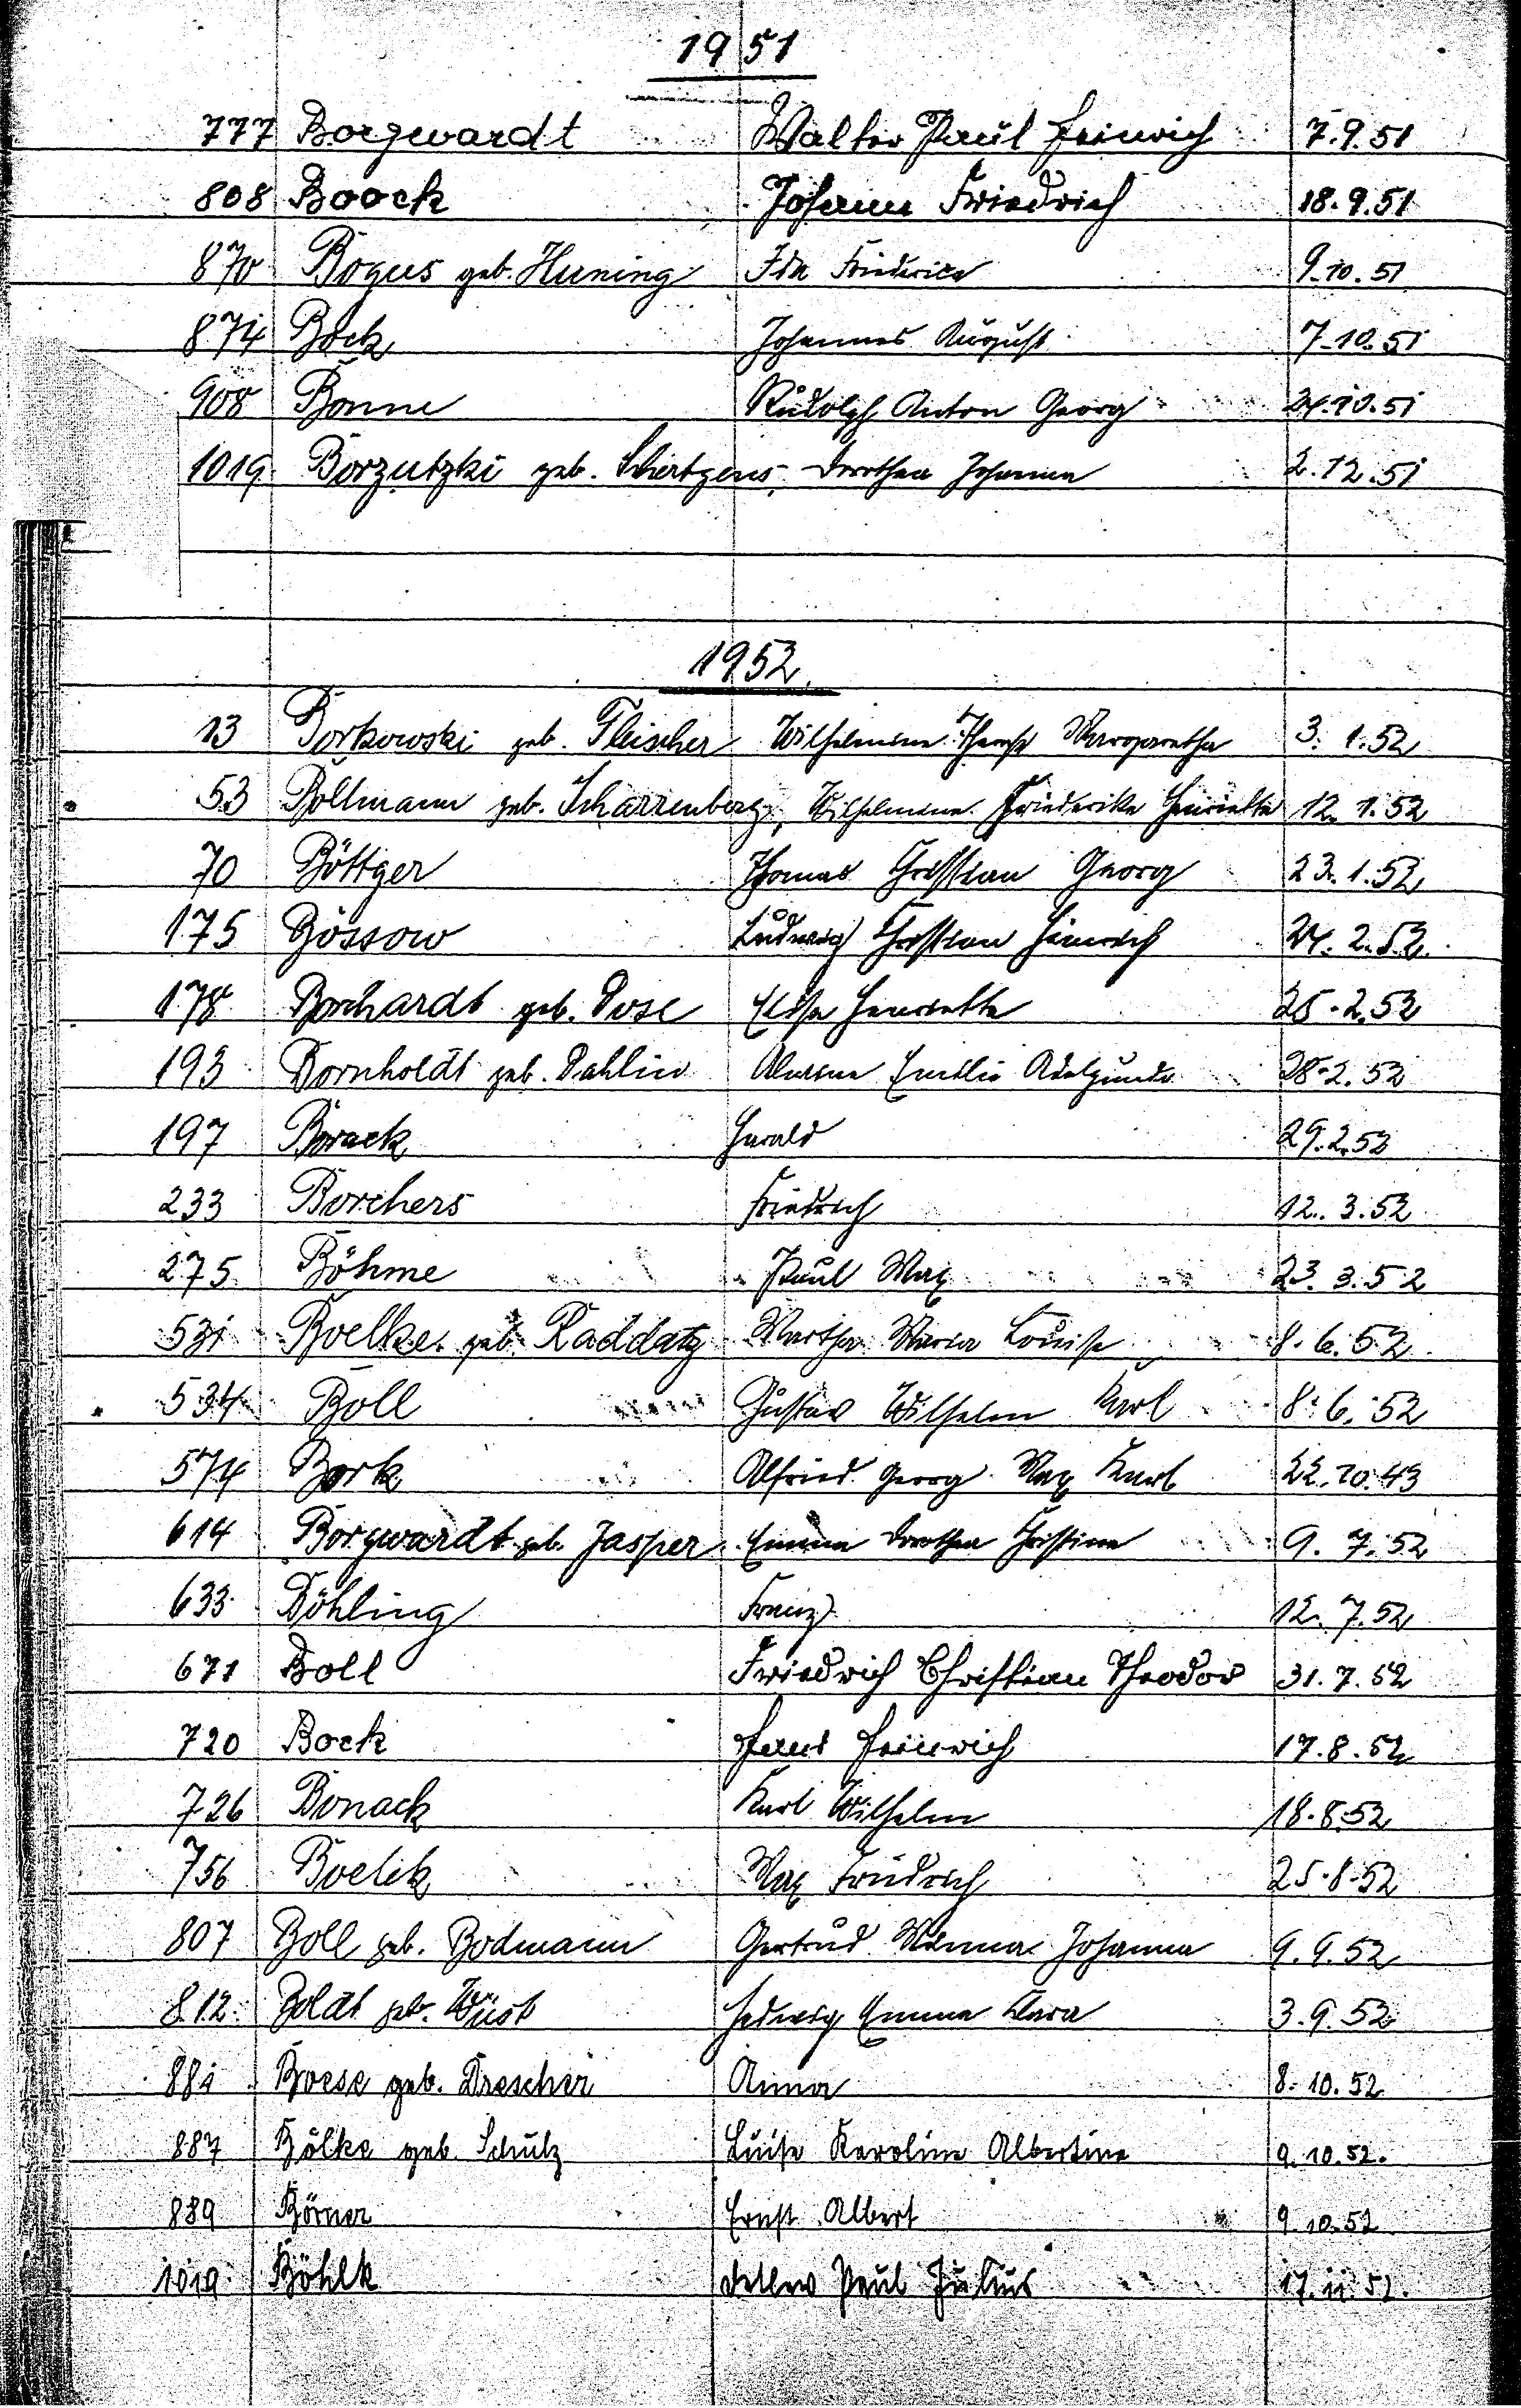 1951
777 Borgwardt Walter Paul Heinrich 7.9.51
808 Boock Johann Friedrich 18.9.51
870 Bogus geb. Huning Ida Friederike 9.10.51
874 Bock Johannes August 7.10.51
908 Bonne Rudolph Anton Georg 24.10.51
1019 Borzutzki geb. Schertgens, Dorothea Johanna 2.12.51
1952.
13 Borkowski geb. Fleischer Wilhelmine Therese Margaretha 3.1.52
53 Böllmann geb. Scharrenberg, Wilhelmine Friederike Henriette 12.1.52
70 Böttger Thomas Christian Georg 23.1.52
175 Bössow Ludwig Christian Heinrich 24.2.52
178 Borchardt geb. Dose Elise Henriette 25.2.52
193 Bornholdt geb. Dahlin Alwine Emilie Adelgunde 28.2.52
197 Borack Harald 29.2.52
233 Borchers Friedrich 12.3.52
275 Böhme Paul Max 23.3.52
531 Boelke geb. Raddatz Martha Maria Louise 8.6.52
534 Boll Gustav Wilhelm Karl 8.6.52
574 Bork Alfried Georg Max Karl 22.10.43
614 Borgwardt geb. Jasper Emma Dorothea Christine 9.7.52
633 Böhling Franz 12.7.52
671 Boll Friedrich Christian Theodor 31.7.52
720 Bock Hans Heinrich 17.8.52
726 Bonack Karl Wilhelm 18.8.52
756 Boelik Max Friedrich 25.8.52
807 Boll geb. Bodmann Gertrud Minna Johanna 9.9.52
812 Boldt geb. Wüst Hedwig Emma Klara 3.9.52
881 Boese geb. Drescher Anna 8.10.52
887 Bölke geb. Schulz Luise Karoline Albertine 9.10.52.
889 Börner Ernst Albert 9.10.52
1019 Böhlk Detlev Paul Julius 17.11.52.